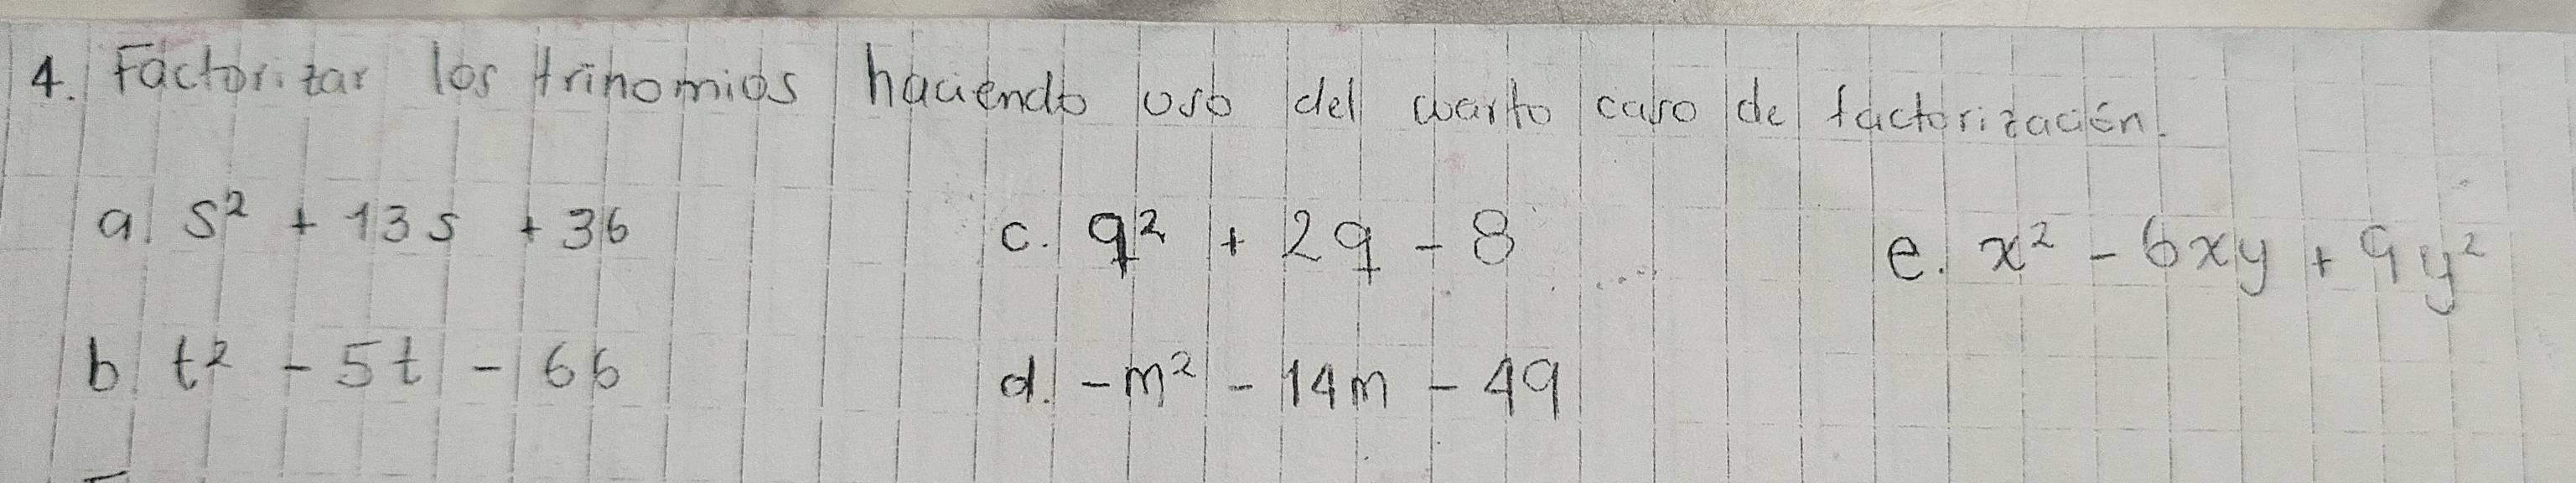 4. Factorizar los trinomios haciendo uso del cuarto caso de factorización.
a. s² + 13s + 36
c. q² + 2q - 8
e. x² - 6xy + 9y²
b. t² - 5t - 66
d. -m² - 14m - 49